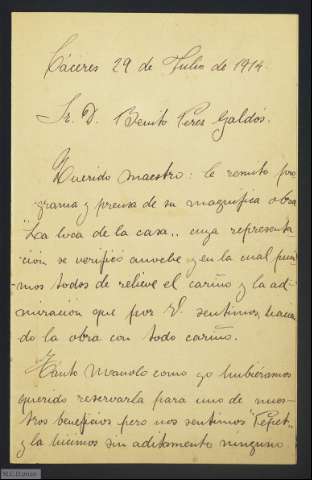 Cáceres 29 de Julio de 1914.
Sr. D. Benito Peres Galdós.
Querido maestro: le remito pro
grama y prensa de su magnifica obra
"La loca de la casa,, cuya representa
ción se verificó anoche y en la cual pusi
mos todos de relieve el cariño y la ad-
miración que por V. sentimos, hacien
do la obra con todo cariño.
Tanto Manolo como yo hubieramos
querido reservarla para uno de nues-
tros beneficios pero nos sentimos "Pepet"
y la hicimos sin aditamento ninguno